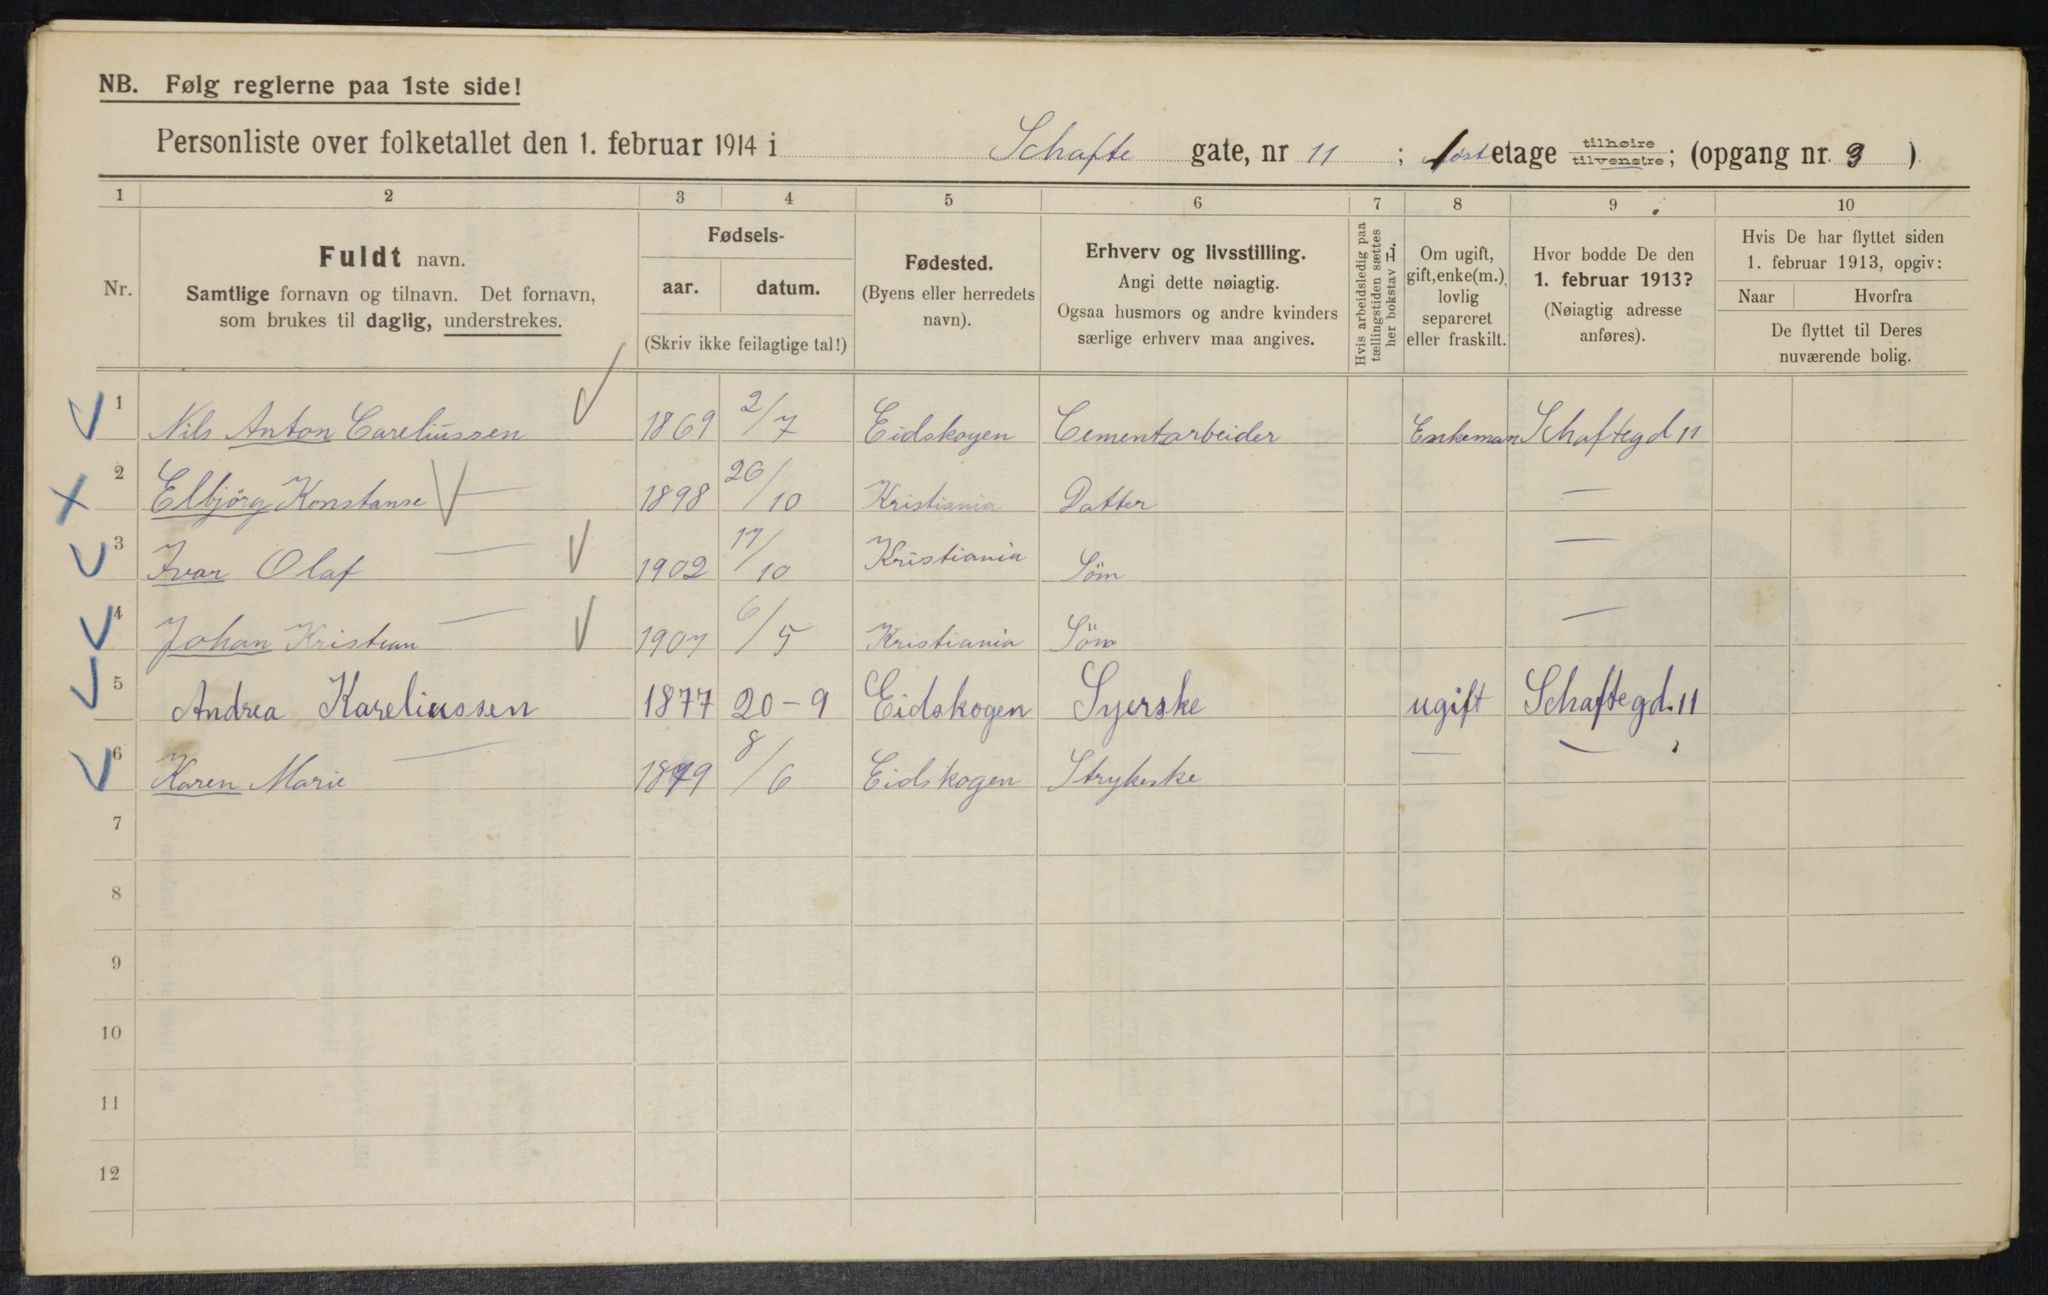 NB. Følg reglerne paa 1ste side!
Personliste over folketallet den 1. februar 1914 i Schafte gate, nr 11 ; 1ste etage tilhøire tilvenstre; (opgang nr. 3 )
1 2 3 4 5 6 7 8 9 10
Nr.
Fuldt navn.
Samtlige fornavn og tilnavn. Det fornavn,
som brukes til daglig, understrekes.
Fødsels-
aar. datum.
(Skriv ikke feilagtige tal!)
Fødested.
(Byens eller herredets
navn).
Erhverv og livsstilling.
Angi dette nøiagtig.
Ogsaa husmors og andre kvinders
særlige erhverv maa angives.
Hvis arbeidsledig paa
tællingstiden sættes
her bokstav L.
Om ugift,
gift, enke(m.),
lovlig
separeret
eller fraskilt.
Hvor bodde De den
1. februar 1913?
(Nøiagtig adresse
anføres).
Hvis De har flyttet siden
1. februar 1913, opgiv:
Naar Hvorfra
De flyttet til Deres
nuværende bolig.
1 Nils Anton Careliussen 1869 2/7 Eidskogen Cementarbeider Enkeman Schaftegd 11
2 Elbjörg Konstanse — 1898 26/10 Kristiania Datter —
3 Ivar Olaf — 1902 17/10 Kristiania Söm —
4 Johan Kristian — 1907 6/5 Kristiania Söm —
5 Andrea Kareliussen 1877 20-9 Eidskogen Syerske ugift Schaftegd. 11
6 Karen Marie — 1879 8/6 Eidskogen Strykeske — —
7
8
9
10
11
12